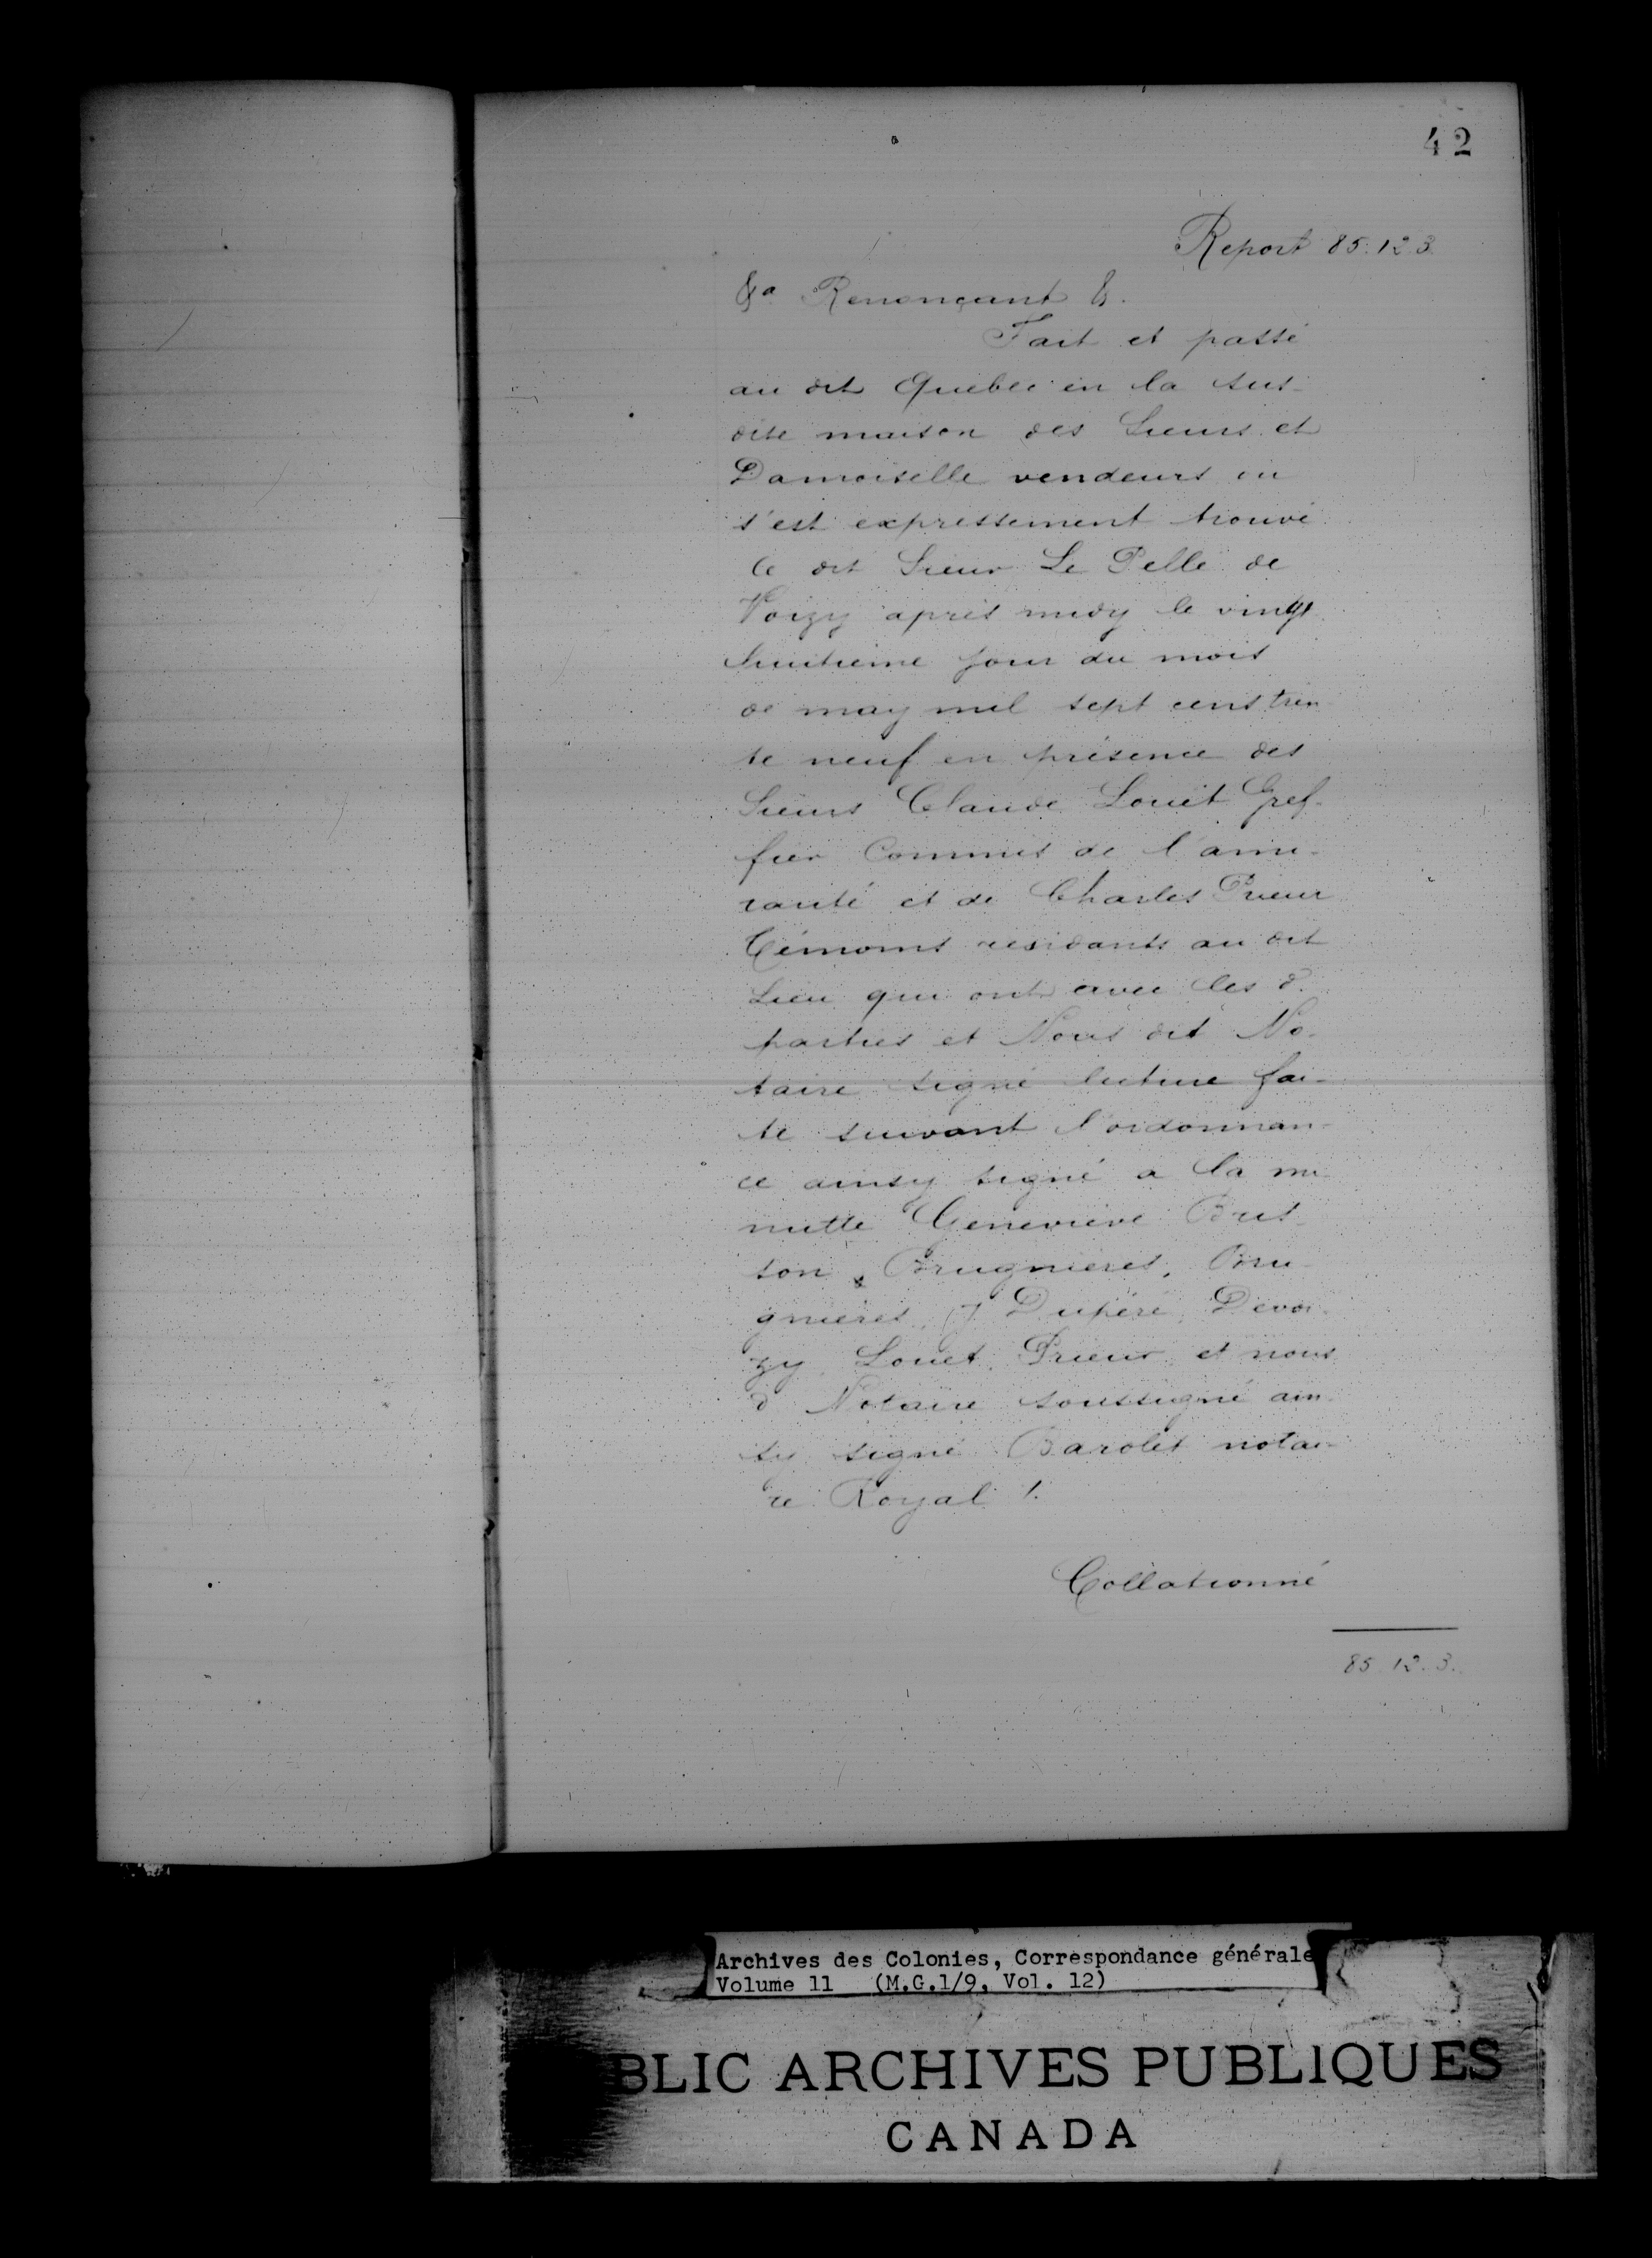 42
Report 85.12.3
&a Renonçant &.
Fait et passé
au dit Quebec en la sus-
dite maison des Sieurs et
Damoiselle vendeurs ou
s'est expressement trouvé
le dit Sieur Le Pelle de
Voizy après midy le vingt
huitieme jour du mois
de may mil sept cens tren
te neuf en présence des
Sieurs Claude Louet Gref-
fier Commis de l'ami-
rauté et de Charles Prieur
Témoins residants au dit
Lieu qui ont avec les d.
parties et Nous dit No-
taire signé lecture fai-
te suivant l'ordonnan-
ce ainsy signé a la mi
nutte Geneviève Bris-
son, Brugnieres, Bru-
gnieres, J Dupéré, Devoi-
zy, Louet, Prieur et nous
d Notaire soussigné ain
sy signé Barolet notai-
re Royal /.
Collationné
85.12.3.
Archives des Colonies, Correspondance générale
Volume 11 (M.G.1/9, Vol. 12)
BLIC ARCHIVES PUBLIQUES
CANADA